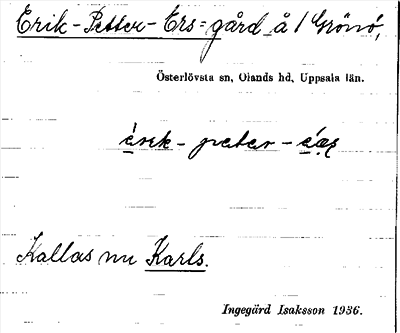 Erik-Petter-Ers-gård å/Grönö,
Österlövsta sn, Olands hd, Uppsala län.
Kallas nu Karls.
Ingegärd Isaksson 1936.